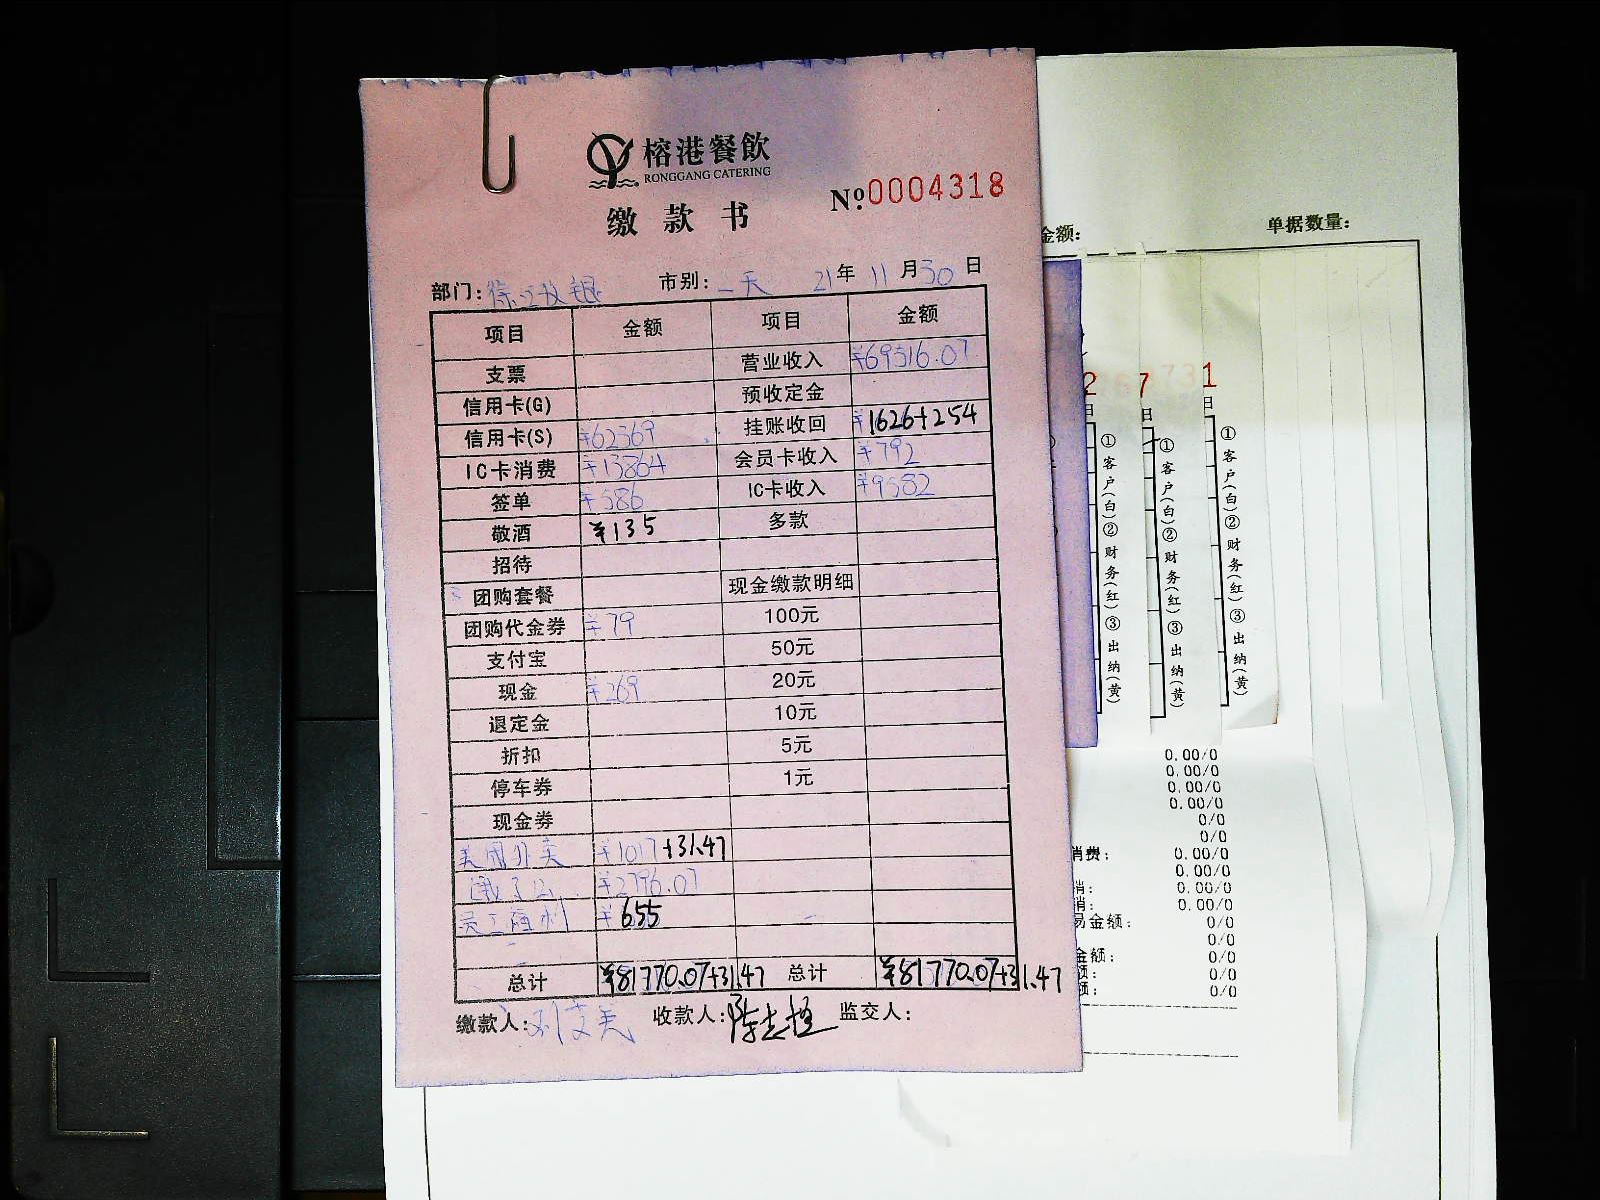 榕港餐飲
RONGGANG CATERING
№0004318
缴款书
部门: 市别:一天 21年11月30日
项目 金额 项目 金额
支票 营业收入 ¥69516.07
信用卡(G) 预收定金
信用卡(S) ¥62369 挂账收回 ¥1626+254
IC卡消费 ¥13864 会员卡收入 ¥792
签单 ¥586 IC卡收入 ¥9582
敬酒 ¥135 多款
招待
团购套餐 现金缴款明细
团购代金券 ¥79 100元
支付宝 50元
现金 ¥269 20元
退定金 10元
折扣 5元
停车券 1元
现金券
美团外卖 ¥1017+31.47
饿了么 ¥2796.07
员工福利 ¥655
总计 ¥81770.07+31.47 总计 ¥81770.07+31.47
缴款人: 收款人: 监交人:
金额: 单据数量:
2 67 731
日 日 日
①客户(白)②财务(红)③出纳(黄)
①客户(白)②财务(红)③出纳(黄)
①客户(白)②财务(红)③出纳(黄)
0.00/0
0.00/0
0.00/0
0.00/0
0/0
0/0
消费: 0.00/0
0.00/0
消: 0.00/0
消: 0.00/0
易金额: 0/0
0/0
金额: 0/0
0/0
额: 0/0